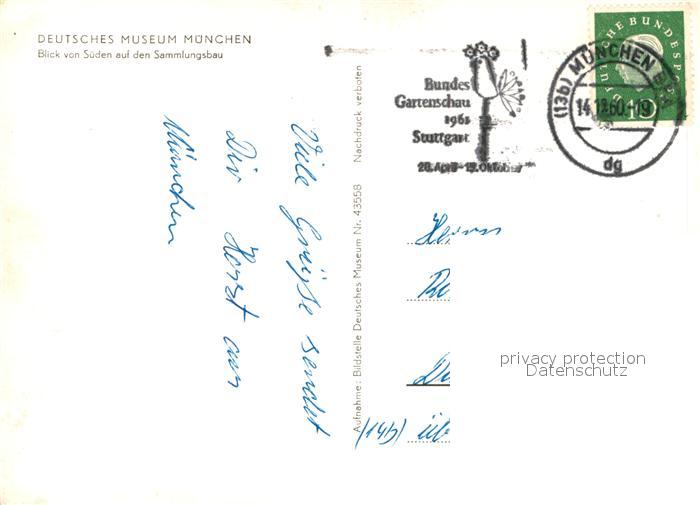 DEUTSCHES MUSEUM MÜNCHEN
Blick von Süden auf den Sammlungsbau
Viele Grüsse sendet
Dir Horst aus
München
Aufnahme: Bildstelle Deutsches Museum Nr. 43558 Nachdruck verboten
Bundes
Gartenschau
1961
Stuttgart
28. April - Oktober
(13b) MÜNCHEN
14.12.60.-19
dg
DEUTSCHE BUNDESPOST
10
Herrn
(14b) üb
privacy protection
Datenschutz